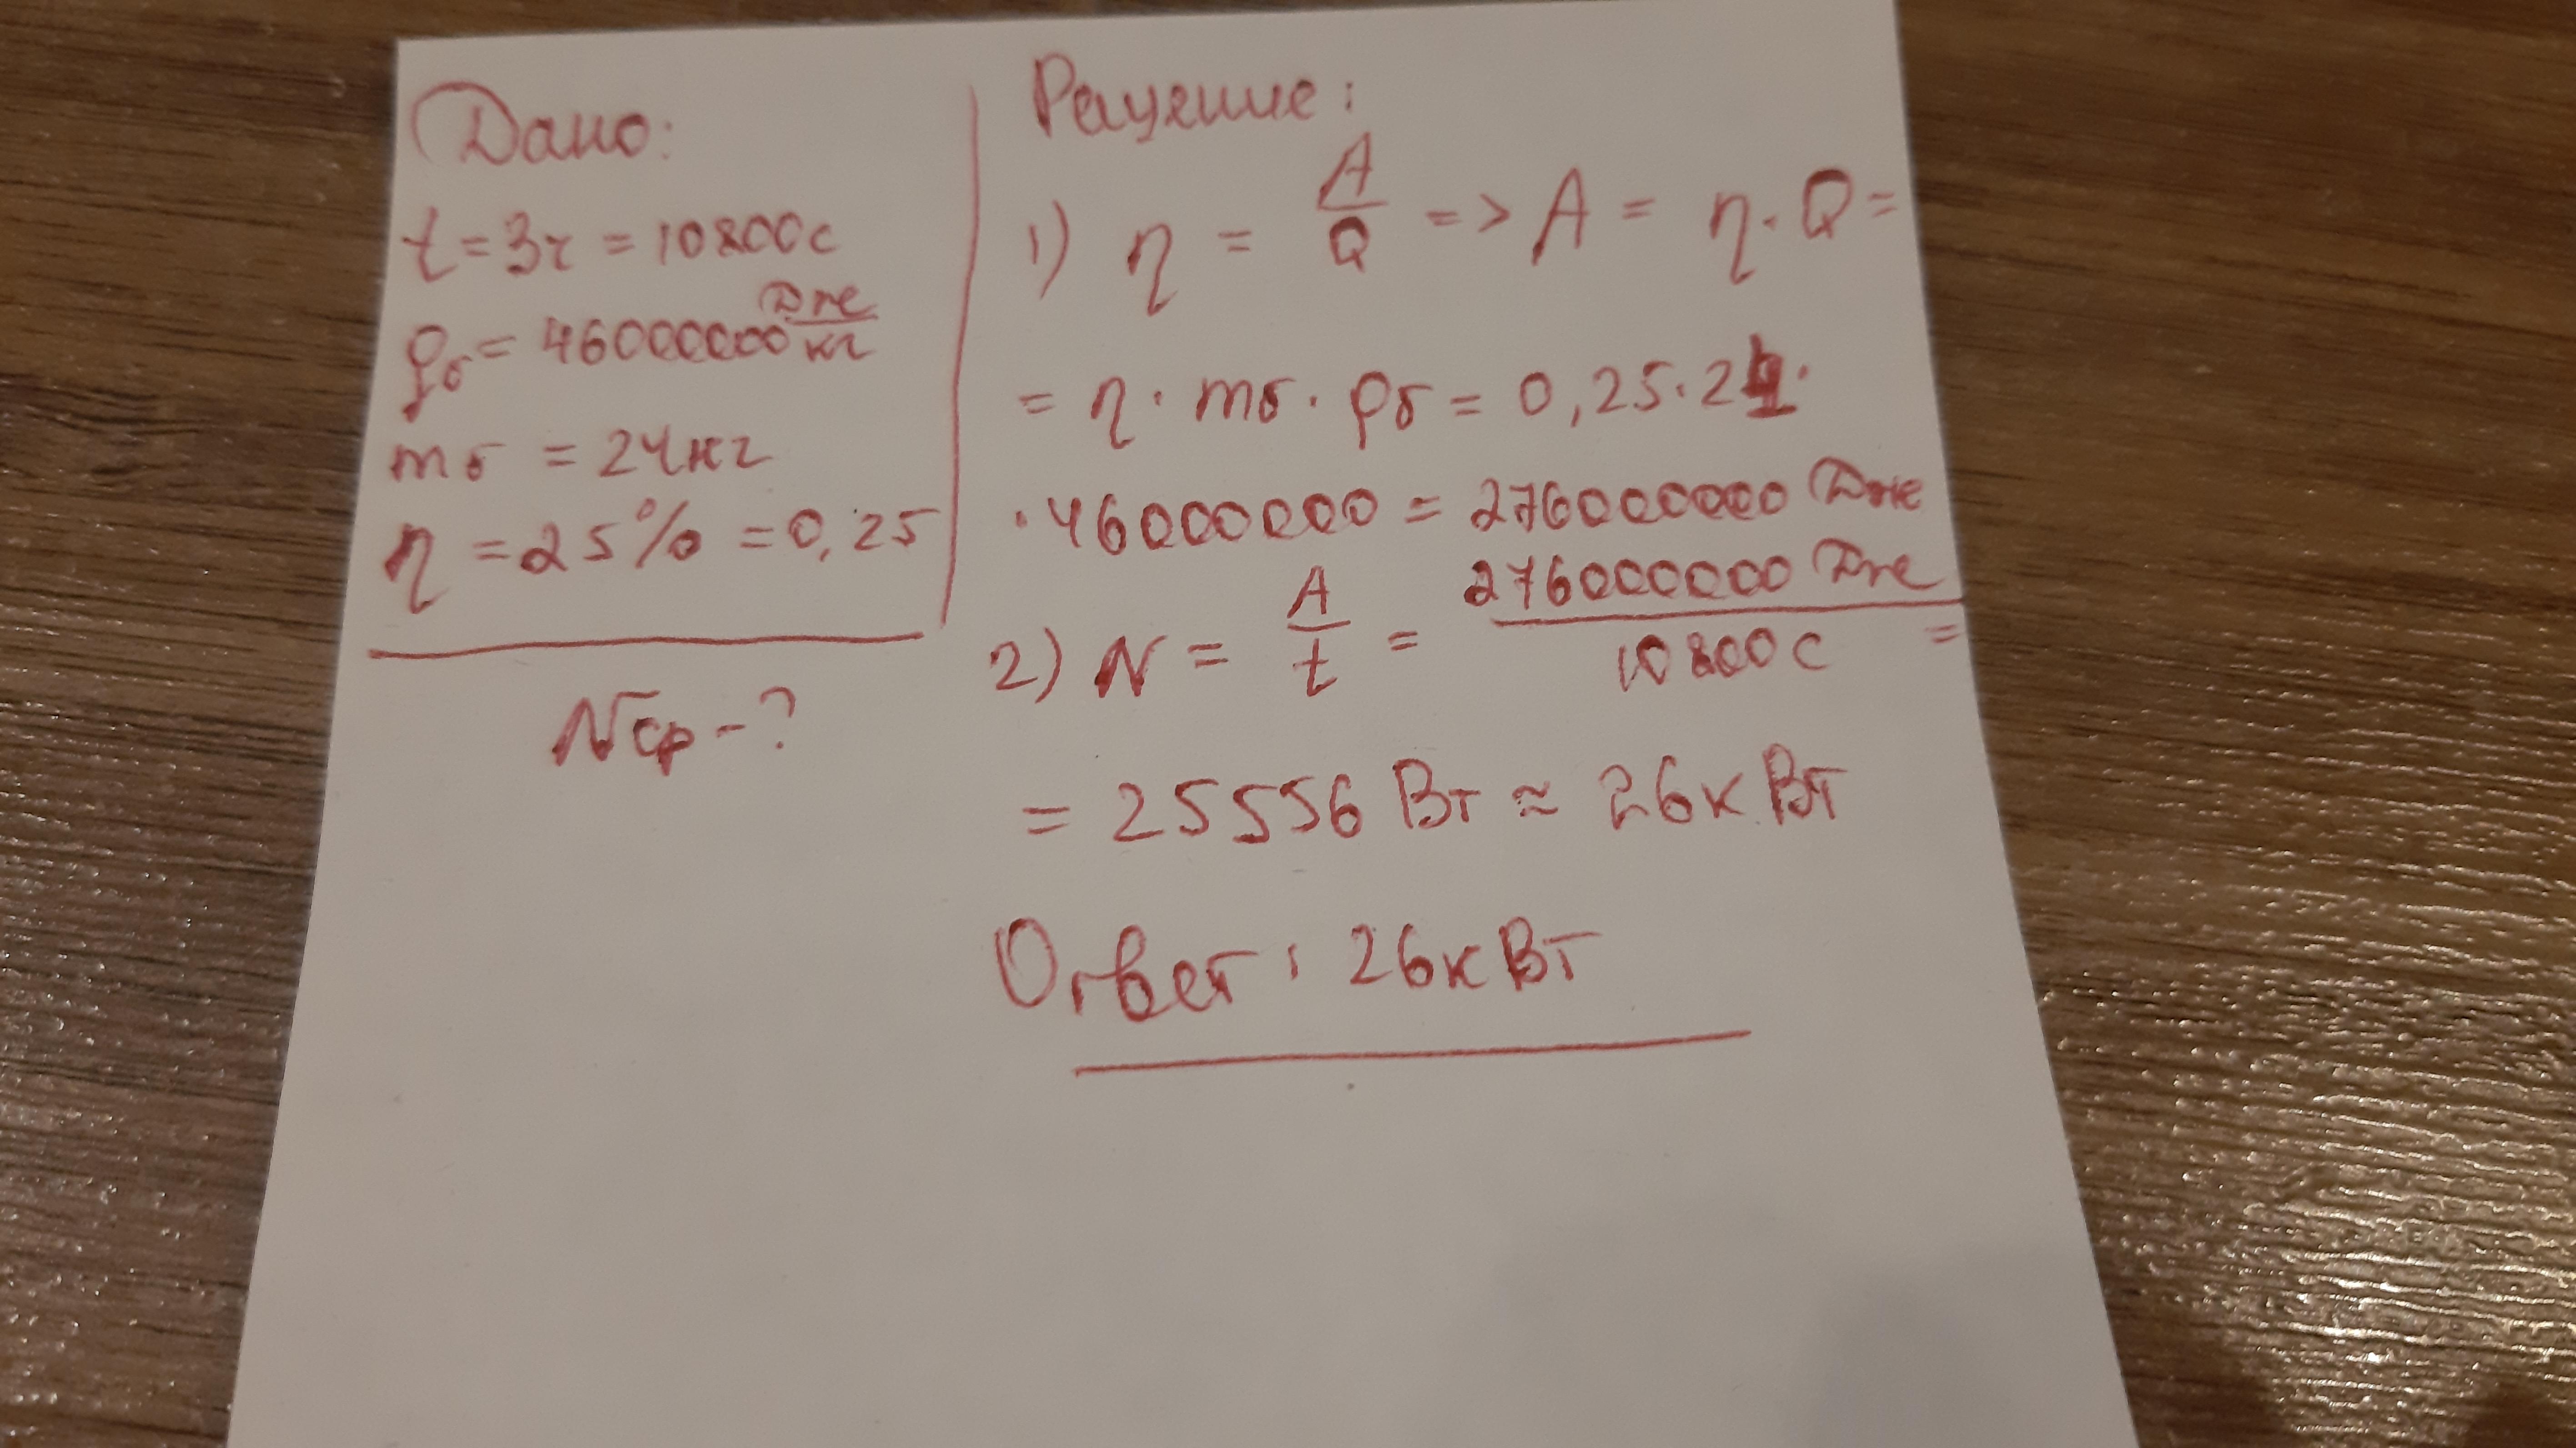 Дано:
t = 3ч = 10800с
qб = 46000000 Дж/кг
mб = 24кг
η = 25% = 0,25
Nср - ?
Решение:
1) η = A/Q => A = η · Q =
= η · mб · qб = 0,25 · 24 ·
· 46000000 = 276000000 Дж
2) N = A/t = 276000000 Дж/10800 с =
= 25556 Вт ≈ 26 кВт
Ответ: 26 кВт